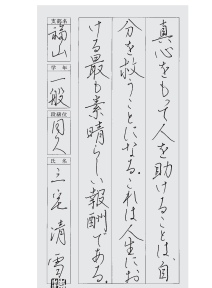 真心をもって人を助けることは、自
分を救うことになる。これは人生にお
ける最も素晴らしい報酬である。
支部名
福山
学年
一般
段級位
同人
氏名
三宅清雪